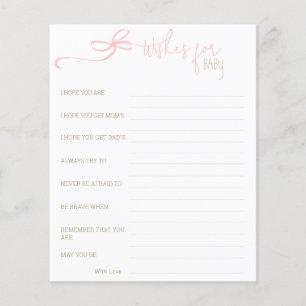 Wishes for
BABY
I HOPE YOU ARE
I HOPE YOU GET MOM'S
I HOPE YOU GET DAD'S
ALWAYS TRY TO
NEVER BE AFRAID TO
BE BRAVE WHEN
REMEMBER THAT YOU
ARE
MAY YOU BE
With Love